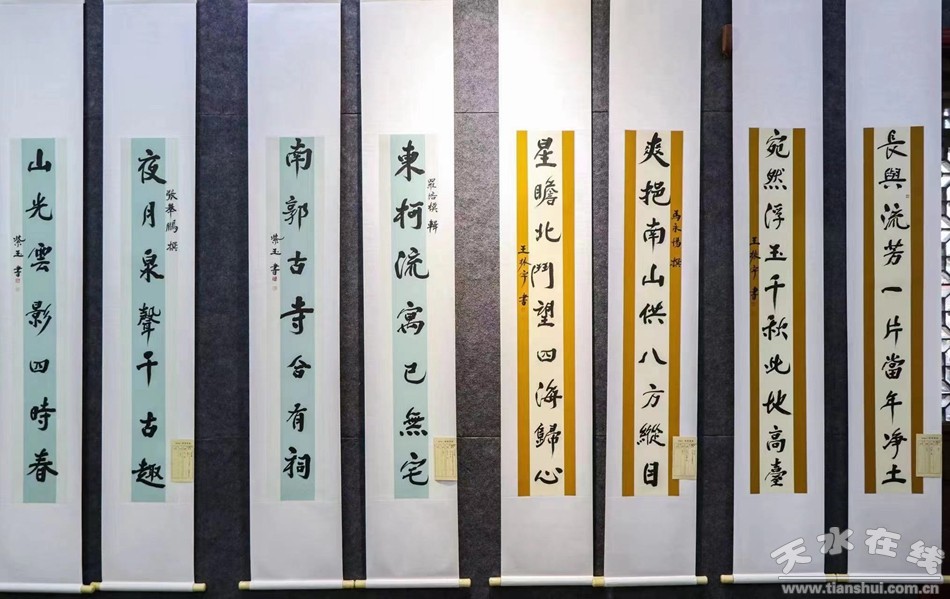 長與流芳一片當年净土
宛然浮玉千秋此地高臺
王振宇書
馬永惕 撰
爽挹南山供八方縱目
星瞻北鬥望四海歸心
王振宇書
東柯流寓已無宅
南郭古寺合有祠
紫玉書
張舉鵬 撰
夜月泉聲千古趣
山光雲影四時春
紫玉書
天水在线
www.tianshui.com.cn